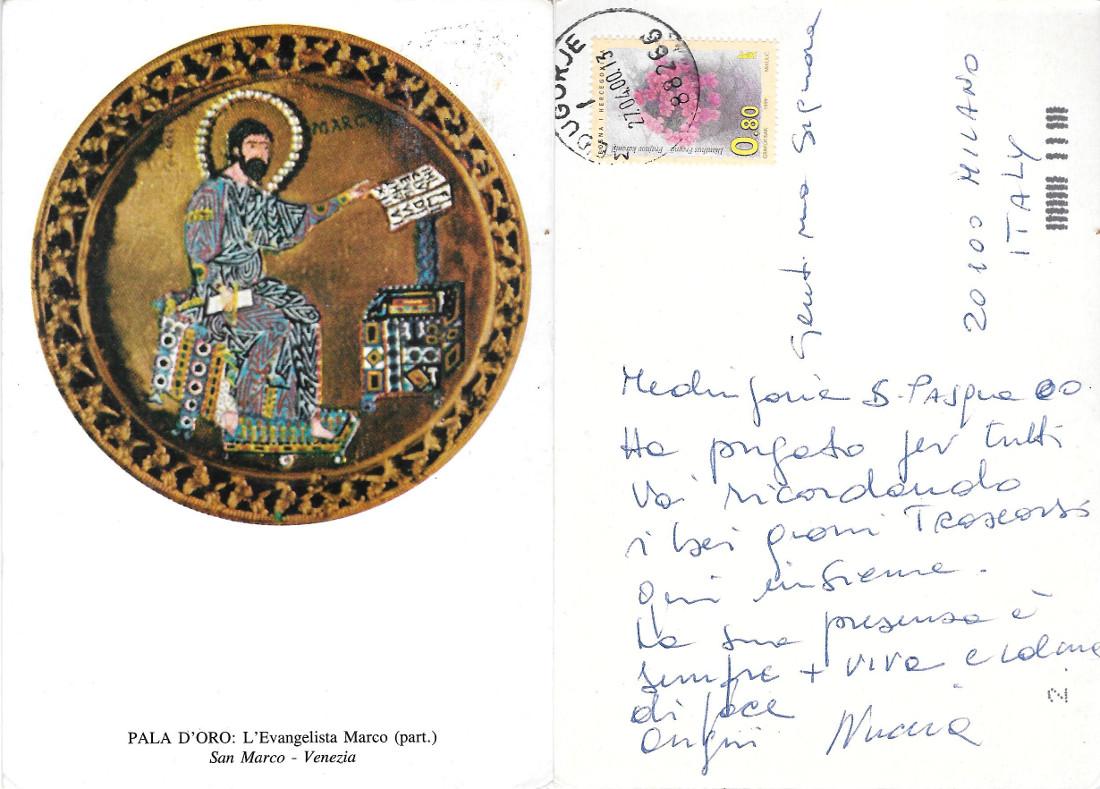 MARC
PALA D'ORO: L'Evangelista Marco (part.)
San Marco - Venezia
BOSNA I HERCEGOVINA
Dianthus Freynii
Frajnov karanfil
0,80
1999
88266
27.04.00.13
1
Gent.ma Signora
20100 MILANO
ITALY
Medjugorje B. Pasqua 00
Ho pregato per tutti
voi ricordando
i bei giorni Trascorsi
qui insieme.
La sua presenza è
sempre + viva e colma
di pace
auguri